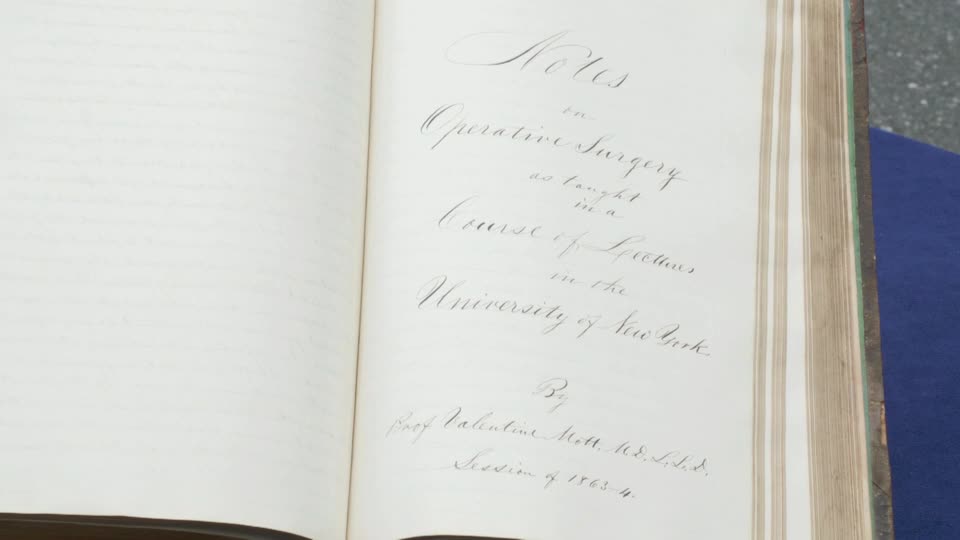 Notes
on
Operative Surgery
as taught
in a
Course of Lectures
in the
University of New York.
By
Prof Valentine Mott. M.D. L.L.D.
Session of 1863-4.